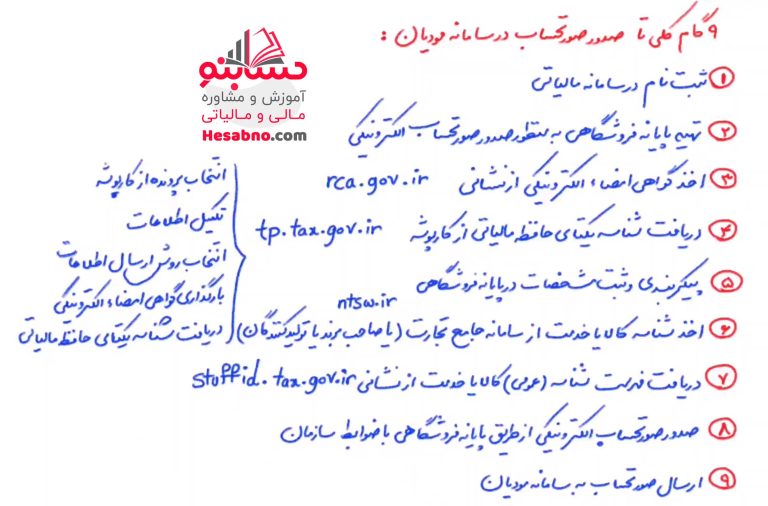 ۹ گام کلی تا صدور صورتحساب در سامانه مودیان :
حسابنو
آموزش و مشاوره
مالی و مالیاتی
Hesabno.com
۱ ثبت نام در سامانه مالیاتی
۲ تهیه پایانه فروشگاهی به منظور صدور صورتحساب الکترونیکی
۳ اخذ گواهی امضاء الکترونیکی از نشانی rca.gov.ir
۴ دریافت شناسه یکتای حافظه مالیاتی از کارپوشه tp.tax.gov.ir
انتخاب پرونده از کارپوشه
تکمیل اطلاعات
انتخاب روش ارسال اطلاعات
بارگذاری گواهی امضاء الکترونیکی
دریافت شناسه یکتای حافظه مالیاتی
۵ پیکربندی و ثبت مشخصات در پایانه فروشگاهی
ntsw.ir
۶ اخذ شناسه کالا یا خدمت از سامانه جامع تجارت (یا صاحب برند یا تولیدکنندگان)
۷ دریافت فهرست شناسه (عمومی) کالا یا خدمت از نشانی stuffid.tax.gov.ir
۸ صدور صورتحساب الکترونیکی از طریق پایانه فروشگاهی با ضوابط سازمان
۹ ارسال صورتحساب به سامانه مودیان